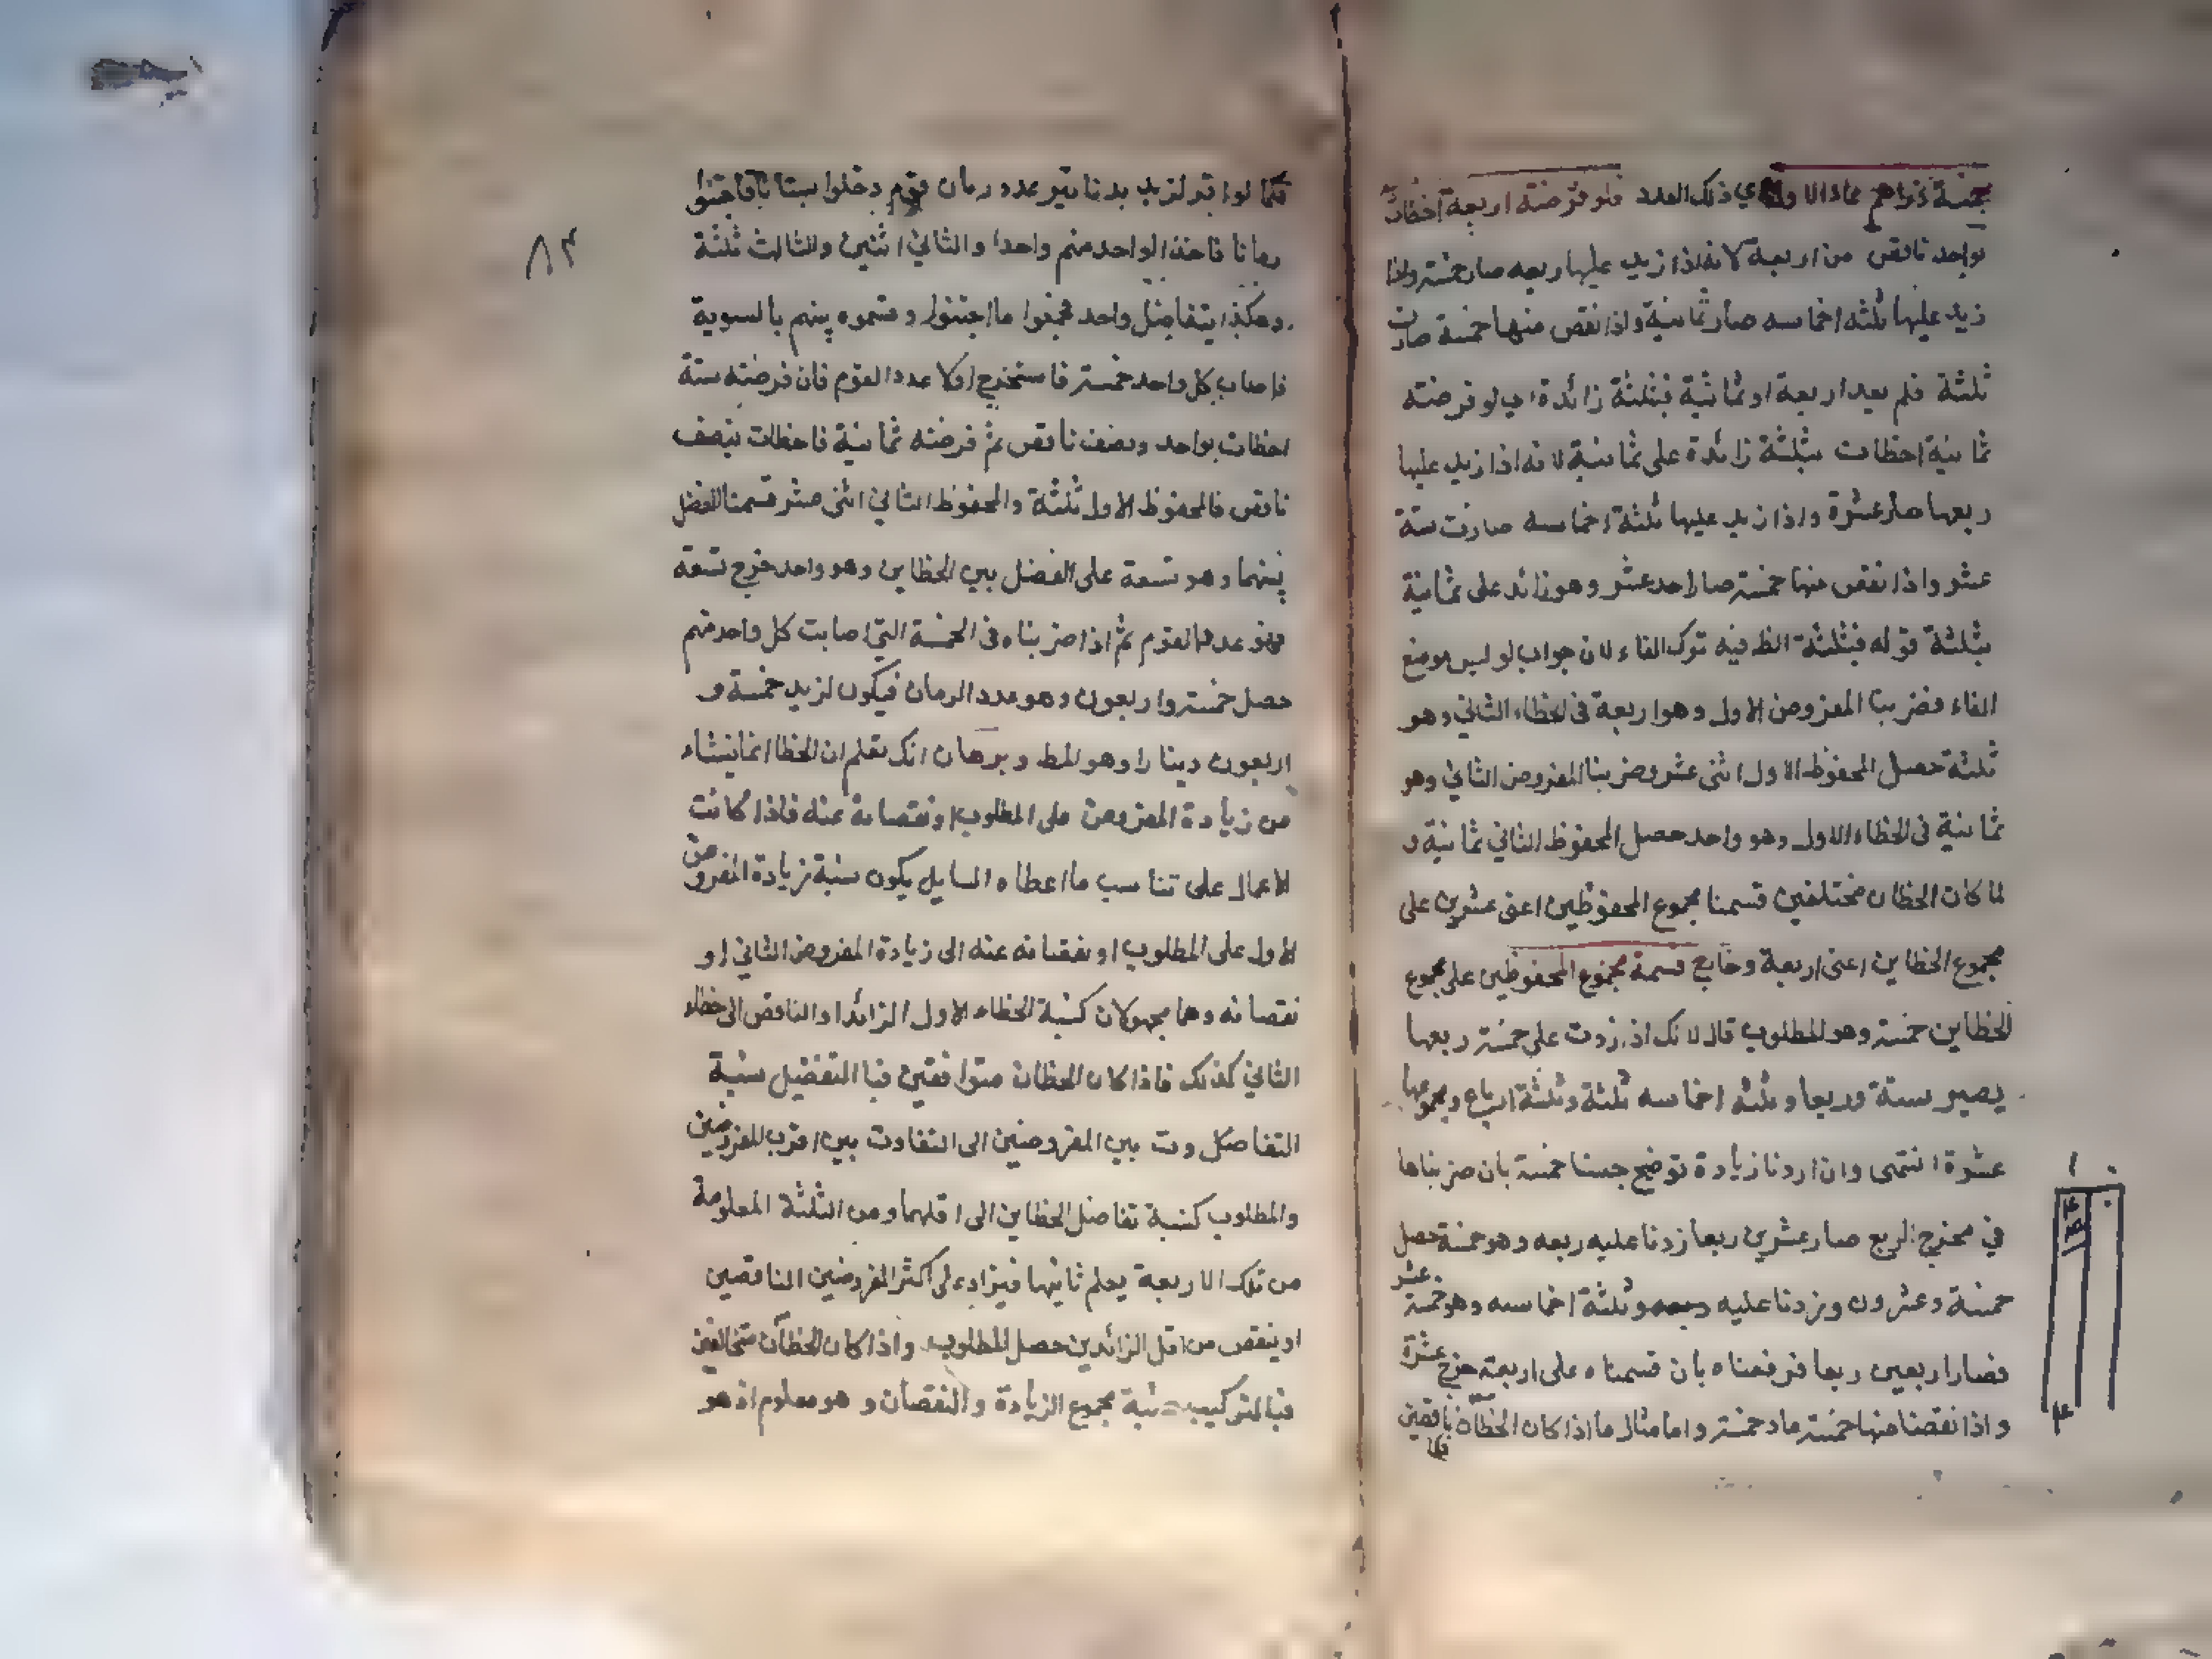 خمسة دراهم عاد الاول اي ذلك العدد فلو فرضته اربعة اخطات
بواحد ناقص من اربعة لانه اذا زيد عليها ربعه صار خمسة واذا
زيد عليها ثلثة اخماسه صار ثمانية واذا نقص منها خمسة صارت
ثلثة فلم يعد اربعة او ثمانية فبثلثة زائدة اي لو فرضته
ثمانية اخطات بثلثة زائدة على ثمانية لانه اذا زيد عليها
ربعها صار عشرة واذا زيد عليها ثلثة اخماسه صارت ستة
عشر واذا نقص منها خمسة صار احد عشر وهو زائد على ثمانية
بثلثة قوله فبثلثة الظ فيه ترك الفاء لان جواب لو ليس موضع
الفاء فضربنا المفروض الاول وهو اربعة في الخطاء الثاني وهو
ثلثة حصل المحفوظ الاول اثنى عشر وضربنا المفروض الثاني وهو
ثمانية في الخطاء الاول وهو واحد حصل المحفوظ الثاني ثمانية و
لما كان الخطان مختلفين قسمنا مجموع المحفوظين اعني عشرين على
مجموع الخطاين اعني اربعة وخارج قسمة مجموع المحفوظين على مجموع
الخطاين خمسة وهو المطلوب قال لانك اذ زدت على خمسة ربعها
يصير ستة وربعا وثلثة اخماسه ثلثة وثلثة ارباع ومجموعها
عشرة انتهى وان اردنا زيادة توضيح جنسنا خمسة بان ضربناها
في مخرج الربع صار عشرين ربعا زدنا عليه ربعه وهو خمسة حصل
خمسة وعشرون وزدنا عليه وثلثة اخماسه وهو خمسة عشر
فصار اربعين ربعا فرفعناه بان قسمناه على اربعة خرج عشرة
واذا نقصنا منها خمسة عاد خمسة واما مثال ما اذا كان الخطان ناقصين
فكما
كما لو اقر لزيد بدنانير عدد رمان قوم دخلوا بستانا فاجتنوا
رمانا فاخذ الواحد منهم واحدا والثاني اثنين والثالث ثلثة
وهكذا يتفاضل واحد فجمعوا ما اجتنوا وقسموه بينهم بالسوية
فاصاب كل واحد خمسة فاستخرج اولا عدد القوم فان فرضته ستة
اخطات بواحد ونصف ناقص ثم فرضته ثمانية فاخطات بنصف
ناقص فالمحفوظ الاول ثلثة والمحفوظ الثاني اثنى عشر قسمنا الفضل
بينهما وهو تسعة على الفضل بين الخطاين وهو واحد خرج تسعة
فهو عدد القوم ثم اذا ضربناه في الخمسة التي اصابت كل واحد منهم
حصل خمسة واربعون وهو عدد الرمان فيكون لزيد خمسة و
اربعون دينارا وهو المط وبرهان انك تعلم ان الخطا انما ينشاء
من زيادة المفروض على المطلوب او نقصانه عنه فاذا كانت
الاعمال على تناسب ما اعطاه السايل يكون نسبة زيادة المفروض
الاول على المطلوب او نقصانه عنه الى زيادة المفروض الثاني او
نقصانه وهما مجهولان كنسبة الخطاء الاول الزائد او الناقص الى خطاء
الثاني كذلك فاذا كان الخطان متوافقين فبالتفضيل نسبة
التفاضل وت بين المفروضين الى التفاوت بين اقرب المفروضين
والمطلوب كنسبة تفاضل الخطاين الى اقلهما ومن الثلثة المعلومة
من تلك الاربعة يعلم ثانيها فيزاد على اكثر المفروضين الناقصين
او ينقص من اقل الزائدين حصل المطلوب واذا كان الخطان متخالفين
فبالتركيب نسبة مجموع الزيادة والنقصان وهو معلوم اذ هو
٨٣